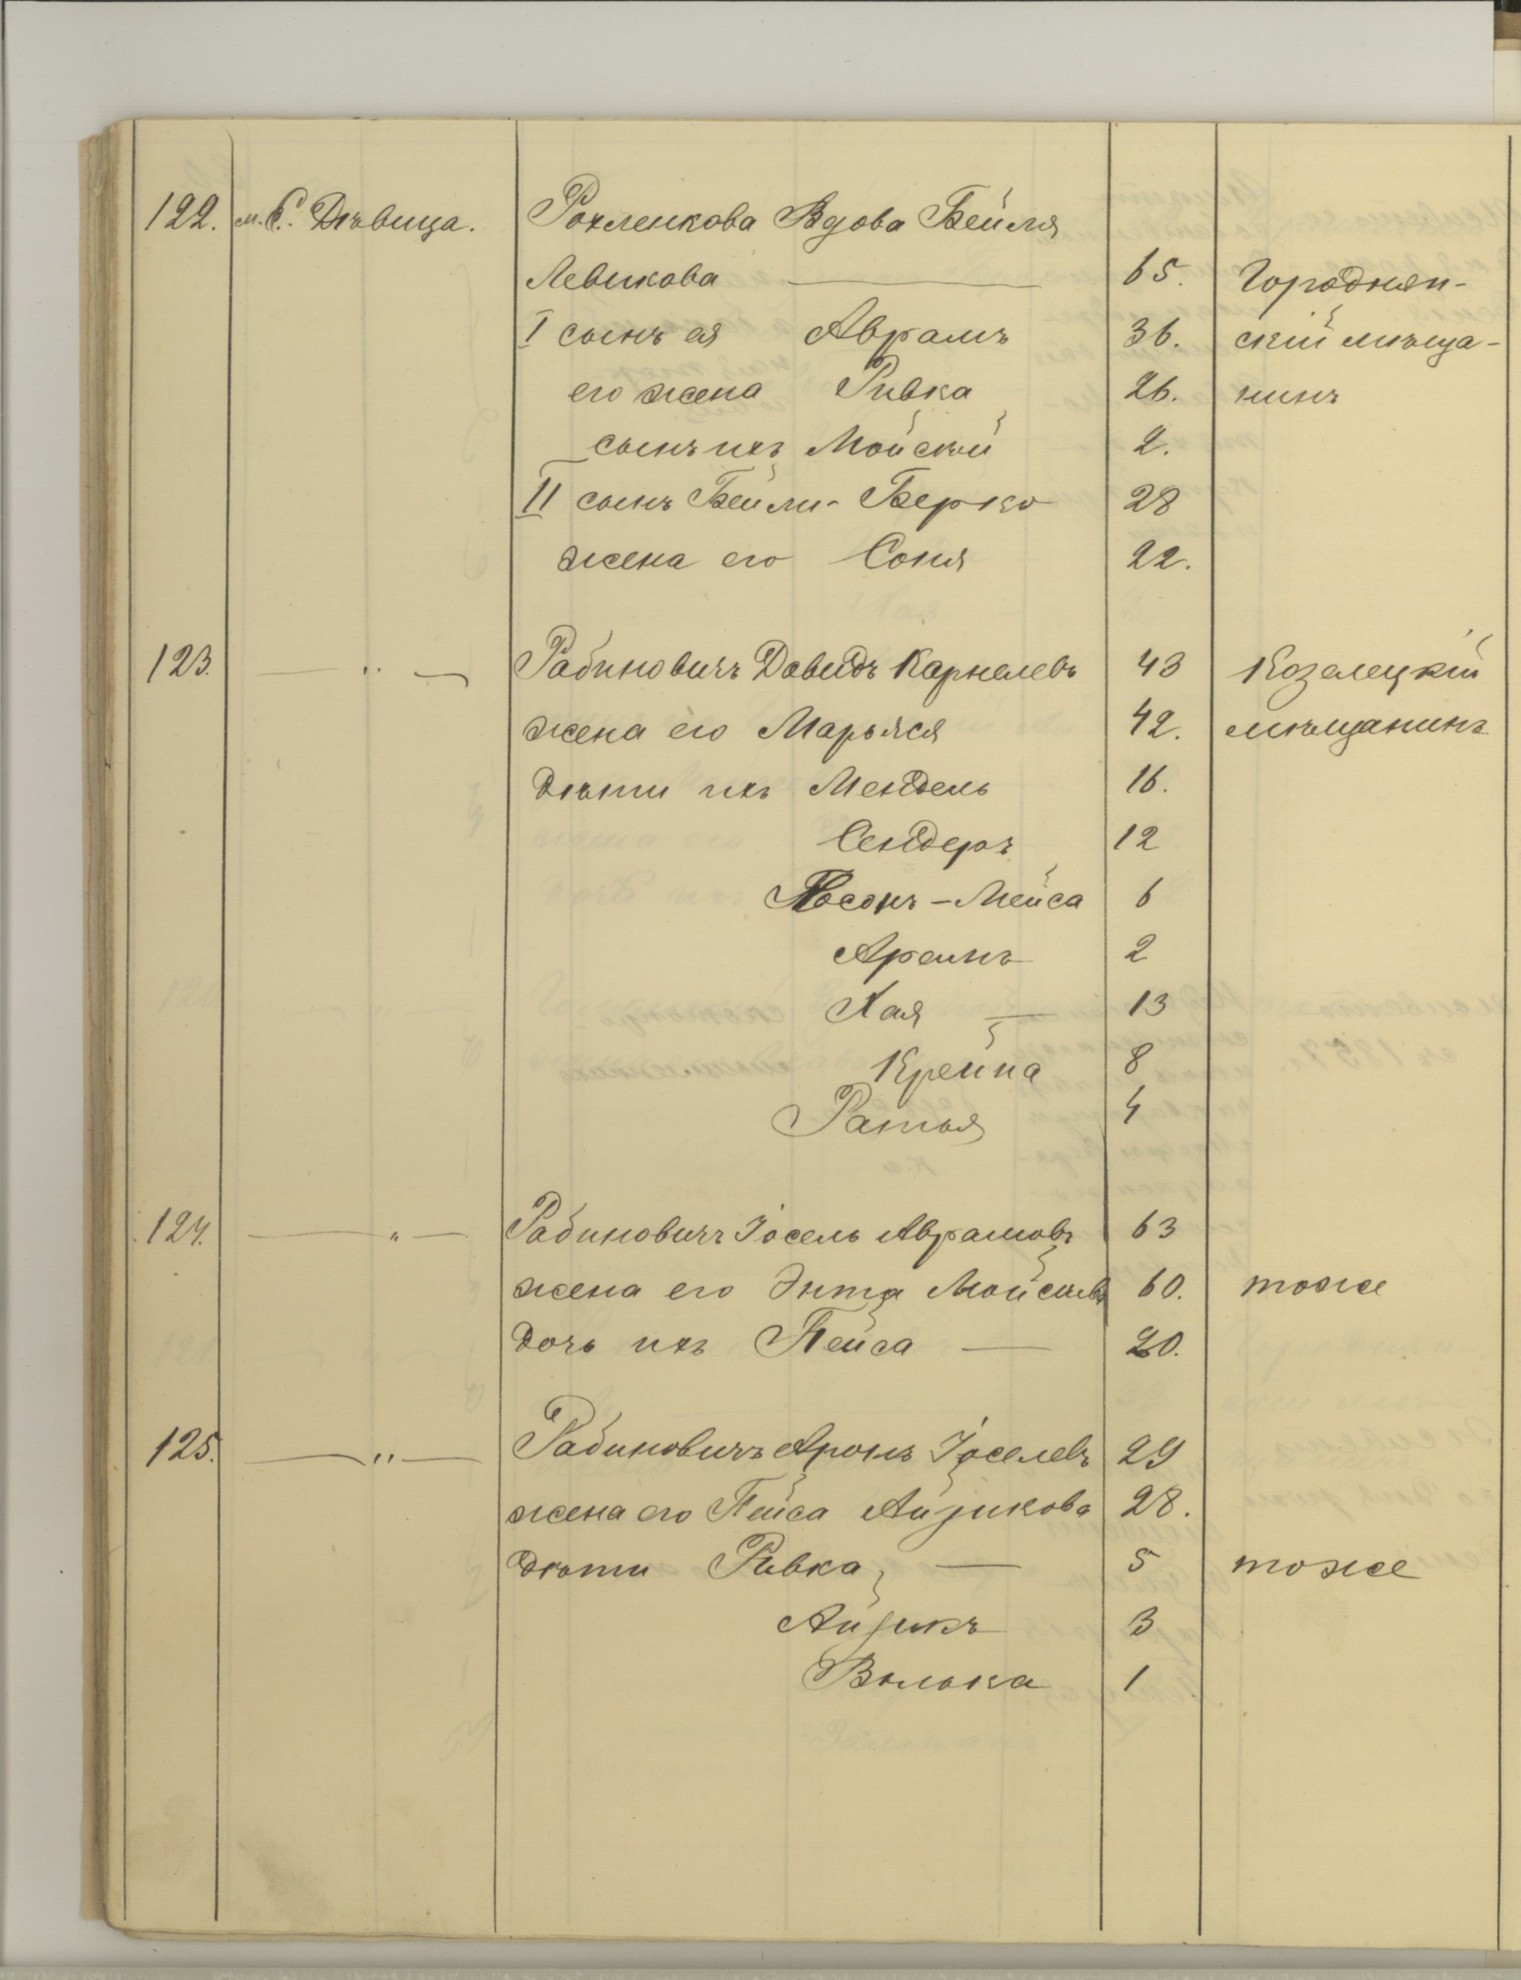 122. м. С. Дѣвица. Рохленкова Вдова Бейля
Левикова — 65. Городнян-
I сынъ ея Аврамъ 36. скій мѣща-
его жена Ривка 26. нинъ
сынъ ихъ Мойсѣй 2.
II сынъ Бейли - Берко 28
жена его Соня 22.
123. — " — Рабиновичъ Давидъ Карпелевъ 43 Козелецкій
жена его Марьяся 42. мѣщанинъ
дѣти ихъ Мендель 16.
Сендеръ 12
Носонъ - Мейса 6
Аремъ 2
Хая — 13
Крейна 8
Ратья 4
124. — " — Рабиновичъ Іосель Аврамовъ 63
жена его Энта Мойсѣева 60. тоже
дочь ихъ Пейса — 20.
125. — " — Рабиновичъ Аронъ Іоселевъ 29
жена его Пейса Айзикова 28.
дѣти Ривка — 5 тоже
Айзикъ 3
Велька 1